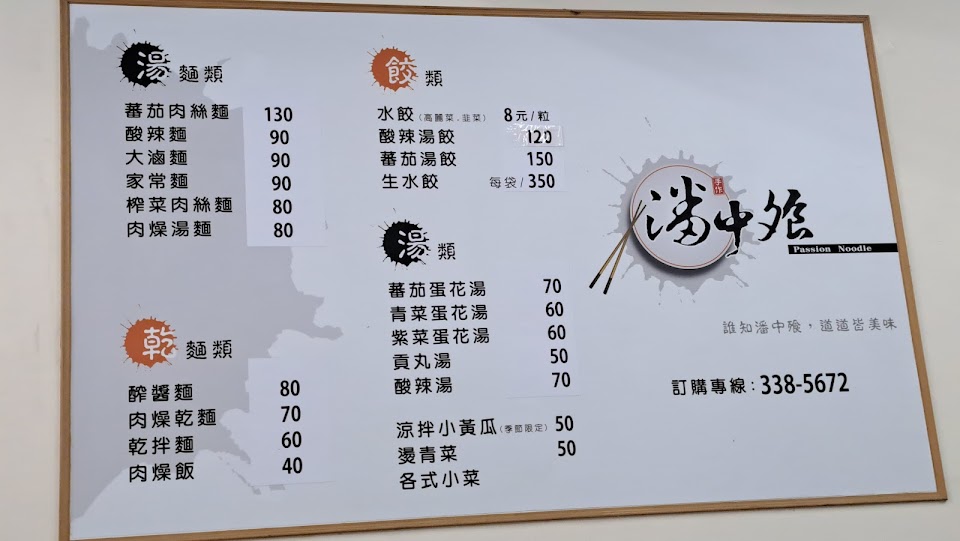 湯 麵類
蕃茄肉絲麵 130
酸辣麵 90
大滷麵 90
家常麵 90
榨菜肉絲麵 80
肉燥湯麵 80
乾 麵類
醡醬麵 80
肉燥乾麵 70
乾拌麵 60
肉燥飯 40
餃 類
水餃(高麗菜.韭菜) 8元/粒
酸辣湯餃 120
蕃茄湯餃 150
生水餃 每袋/350
湯 類
蕃茄蛋花湯 70
青菜蛋花湯 60
紫菜蛋花湯 60
貢丸湯 50
酸辣湯 70
涼拌小黃瓜(季節限定) 50
燙青菜 50
各式小菜
手作
潘中飧
Passion Noodle
誰知潘中飧,道道皆美味
訂購專線:338-5672